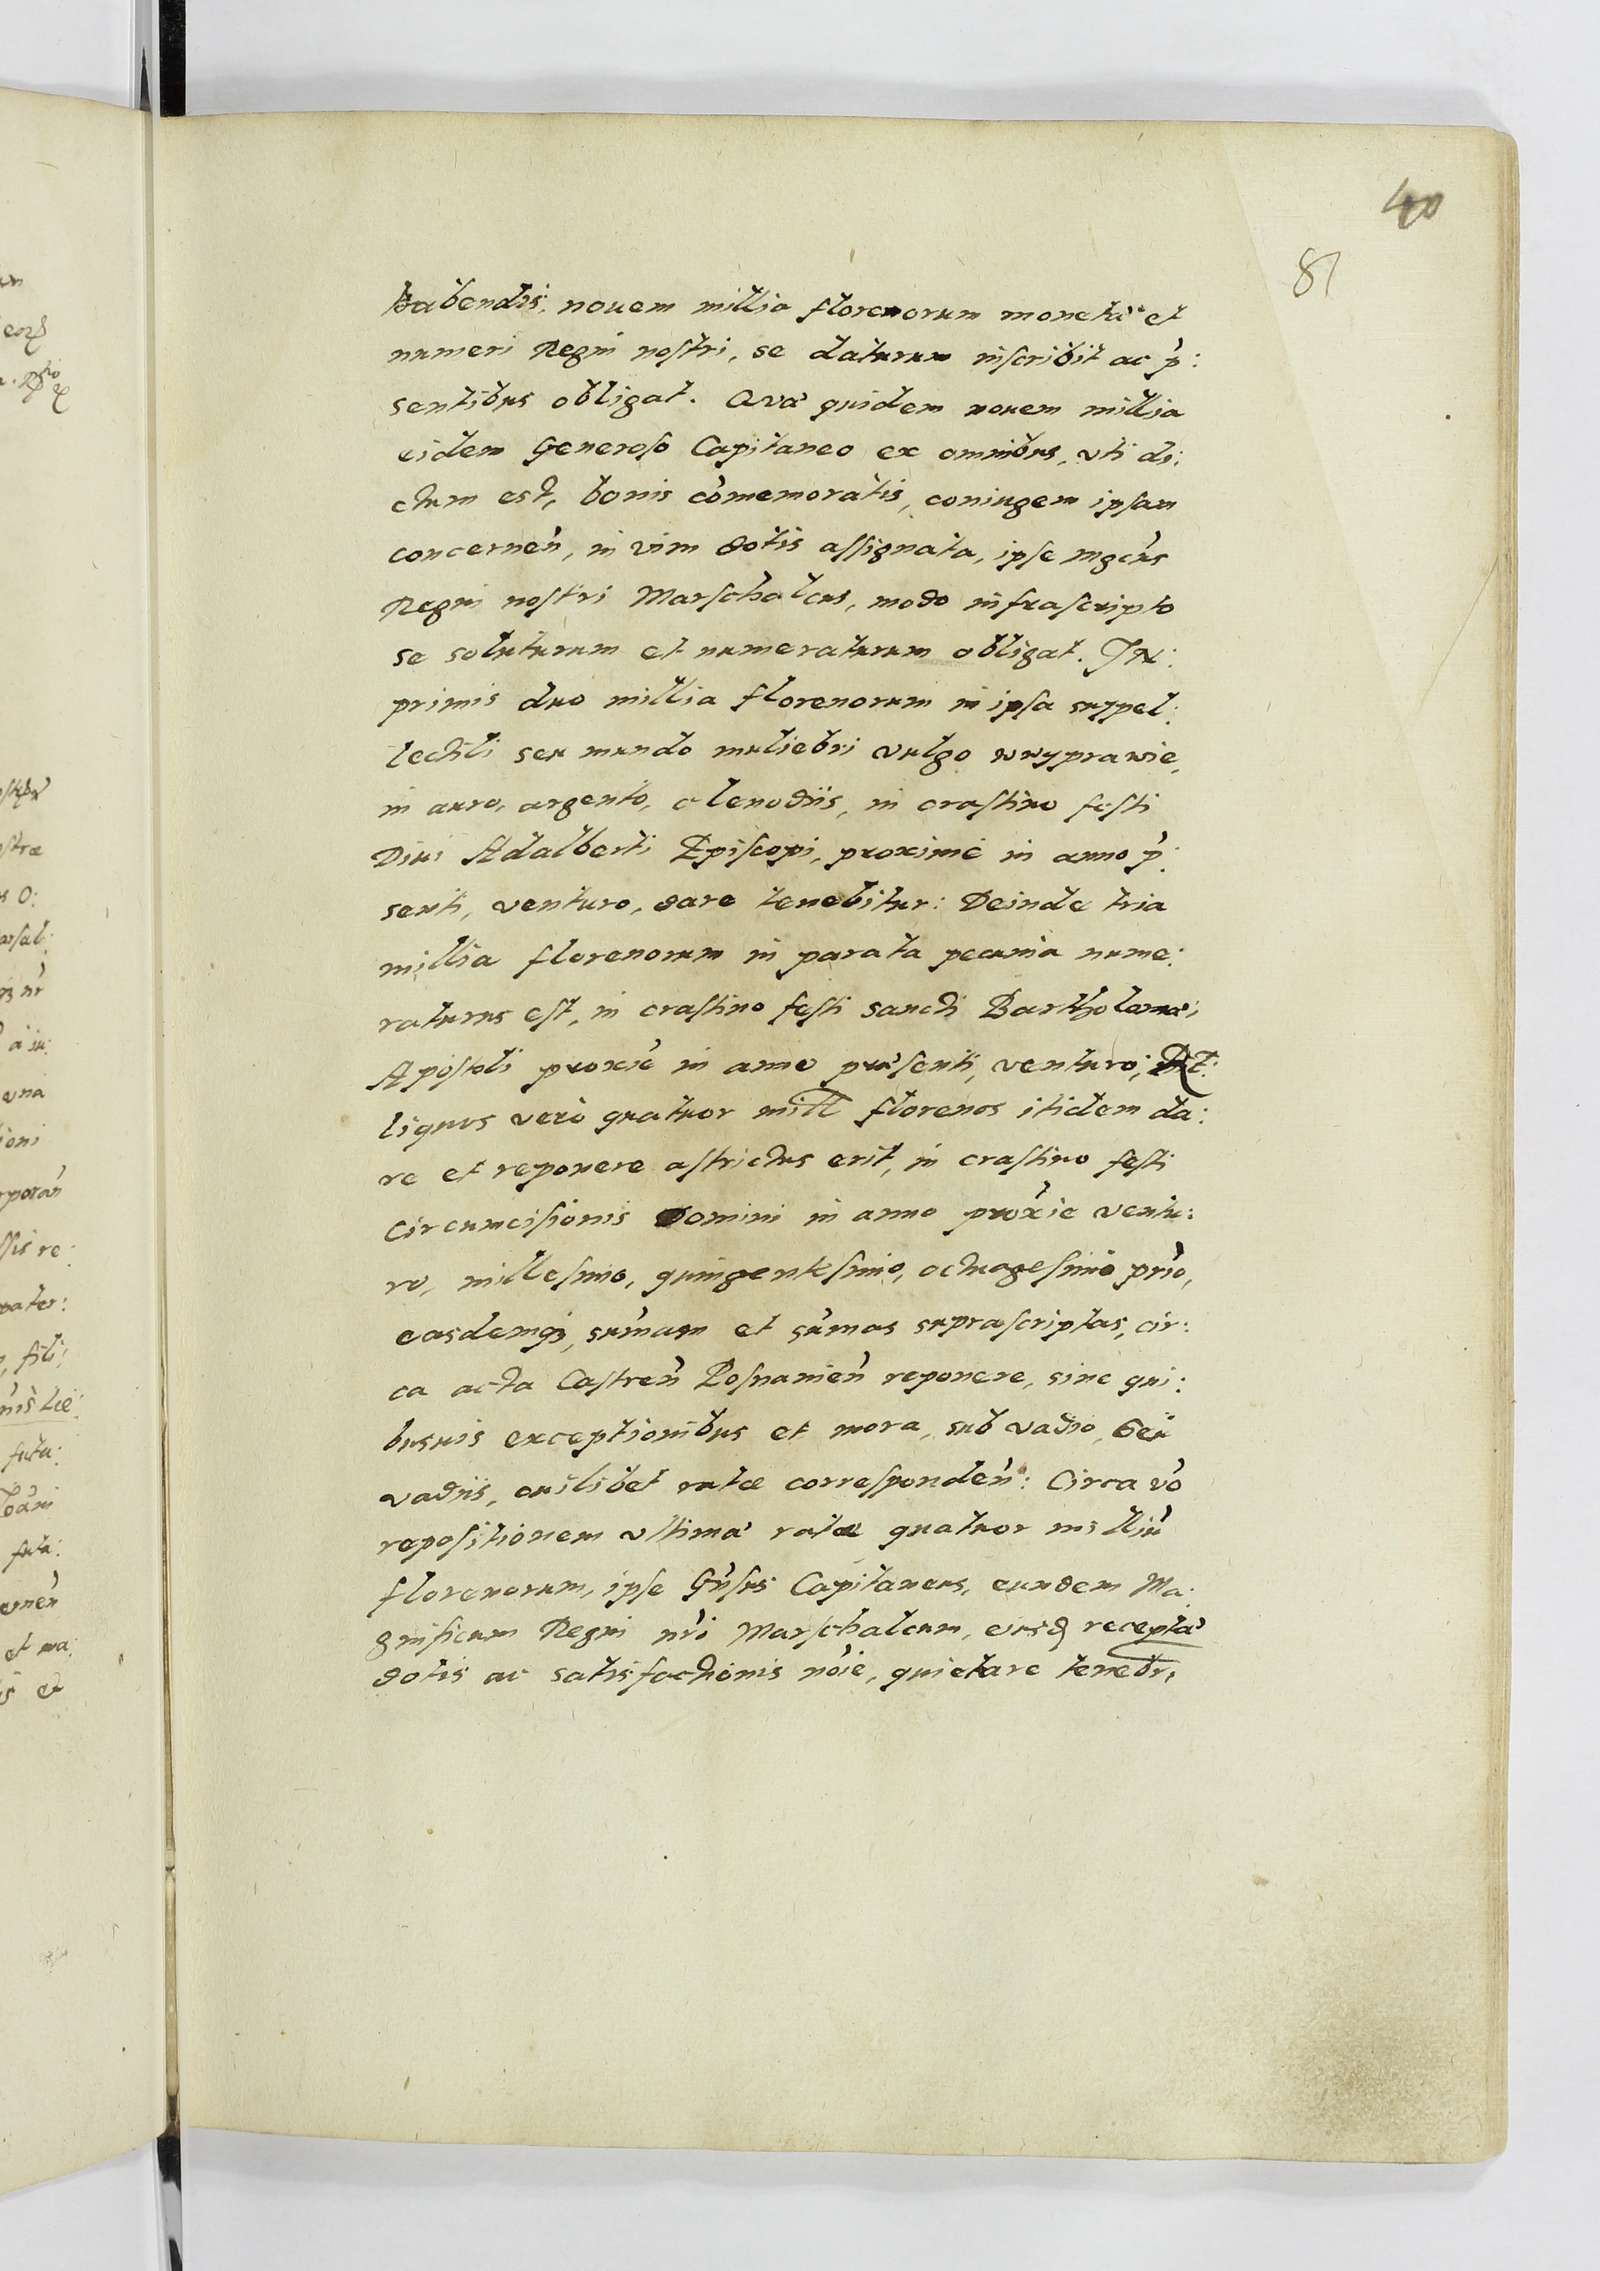 40
81
habendis, nouem millia florenorum monetæ et
numeri Regni nostri, se daturum inscribit ac p̃:
sentibus obligat. Quæ quidem nouem millia
eidem Generoso Capitaneo ex omnibus, vti di:
ctum est, bonis com̃emoratis, coniugem ipsam
concerneñ, in vim dotis assignata, ipse mgcũs
Regni nostri Marschalcus, modo infrascripto
se soluturum et numeraturum obligat. In:
primis duo millia florenorum in ipsa suppel:
lectili seu mundo muliebri vulgo wyprawie,
in auro, argento, clenodiis, in crastino festi
Diui Adalberti Episcopi, proximè in anno p̃:
senti, venturo, dare tenebitur: Deinde tria
millia florenorum in parata pecunia nume:
raturus est, in crastino festi sancti Bartholomæi
Apostoli proxiẽ in anno præsenti, venturo; Re:
liquos verò quatuor mill florenos itidem da:
re et reponere astrictus erit, in crastino festi
Circumcisionis Domini in anno proxĩe ventu:
ro, millesimo, quingentesimo, octuagesimo prĩo,
easdemq3, sum̃am et sum̃as suprascriptas, cir:
ca acta Castreñ Posnanieñ reponere, sine qui:
busuis exceptionibus et mora, sub vadio, seu
vadiis, cuilibet ratæ correspondeñ: Circa võ
repositionem vltimæ ratæ quatuor milliũ
florenorum, ipse Gñsus Capitaneus, eundem Ma:
gnificum Regni nr̃i Marschalcum, eiusd receptæ
dotis ac satisfactionis nõie, quietare tenebr,